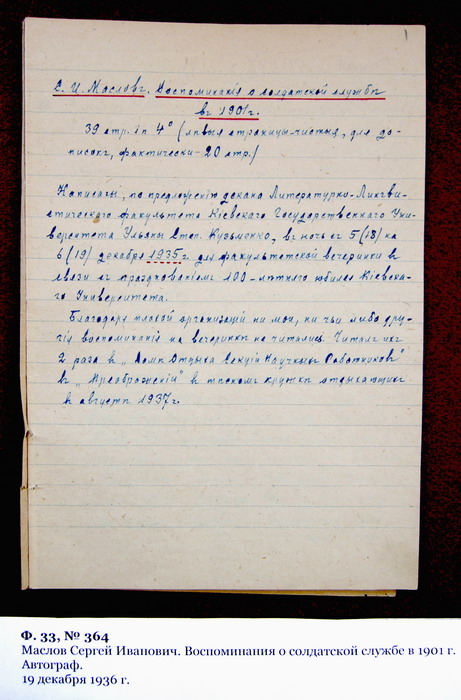 1
С. И. Масловъ. Воспоминанія о солдатской службѣ
въ 1901 г.
39 стр. in 4° (лѣвыя страницы-чистыя, для до-
писокъ, фактически-20 стр.)
Написаны, по предложенію декана Литературно-Лингви-
стическаго факультета Кіевскаго Государственнаго Уни-
верситета Ульяны Степ. Кузьменко, въ ночь съ 5 (18) на
6 (19) декабря 1935 г. для факультетской вечеринки въ
связи съ празднованіемъ 100-лѣтняго юбилея Кіевска-
го Университета.
Благодаря плохой организаціи ни мои, ни чьи либо дру-
гія воспоминанія на вечеринкѣ не читались. Читалъ ихъ
2 раза въ „Домѣ Отдыха Секціи Научныхъ Работниковъ"
въ „Преображеніи" въ тѣсномъ кружкѣ отдыхающихъ
въ августѣ 1937 г.
Ф. 33, № 364
Маслов Сергей Иванович. Воспоминания о солдатской службе в 1901 г.
Автограф.
19 декабря 1936 г.